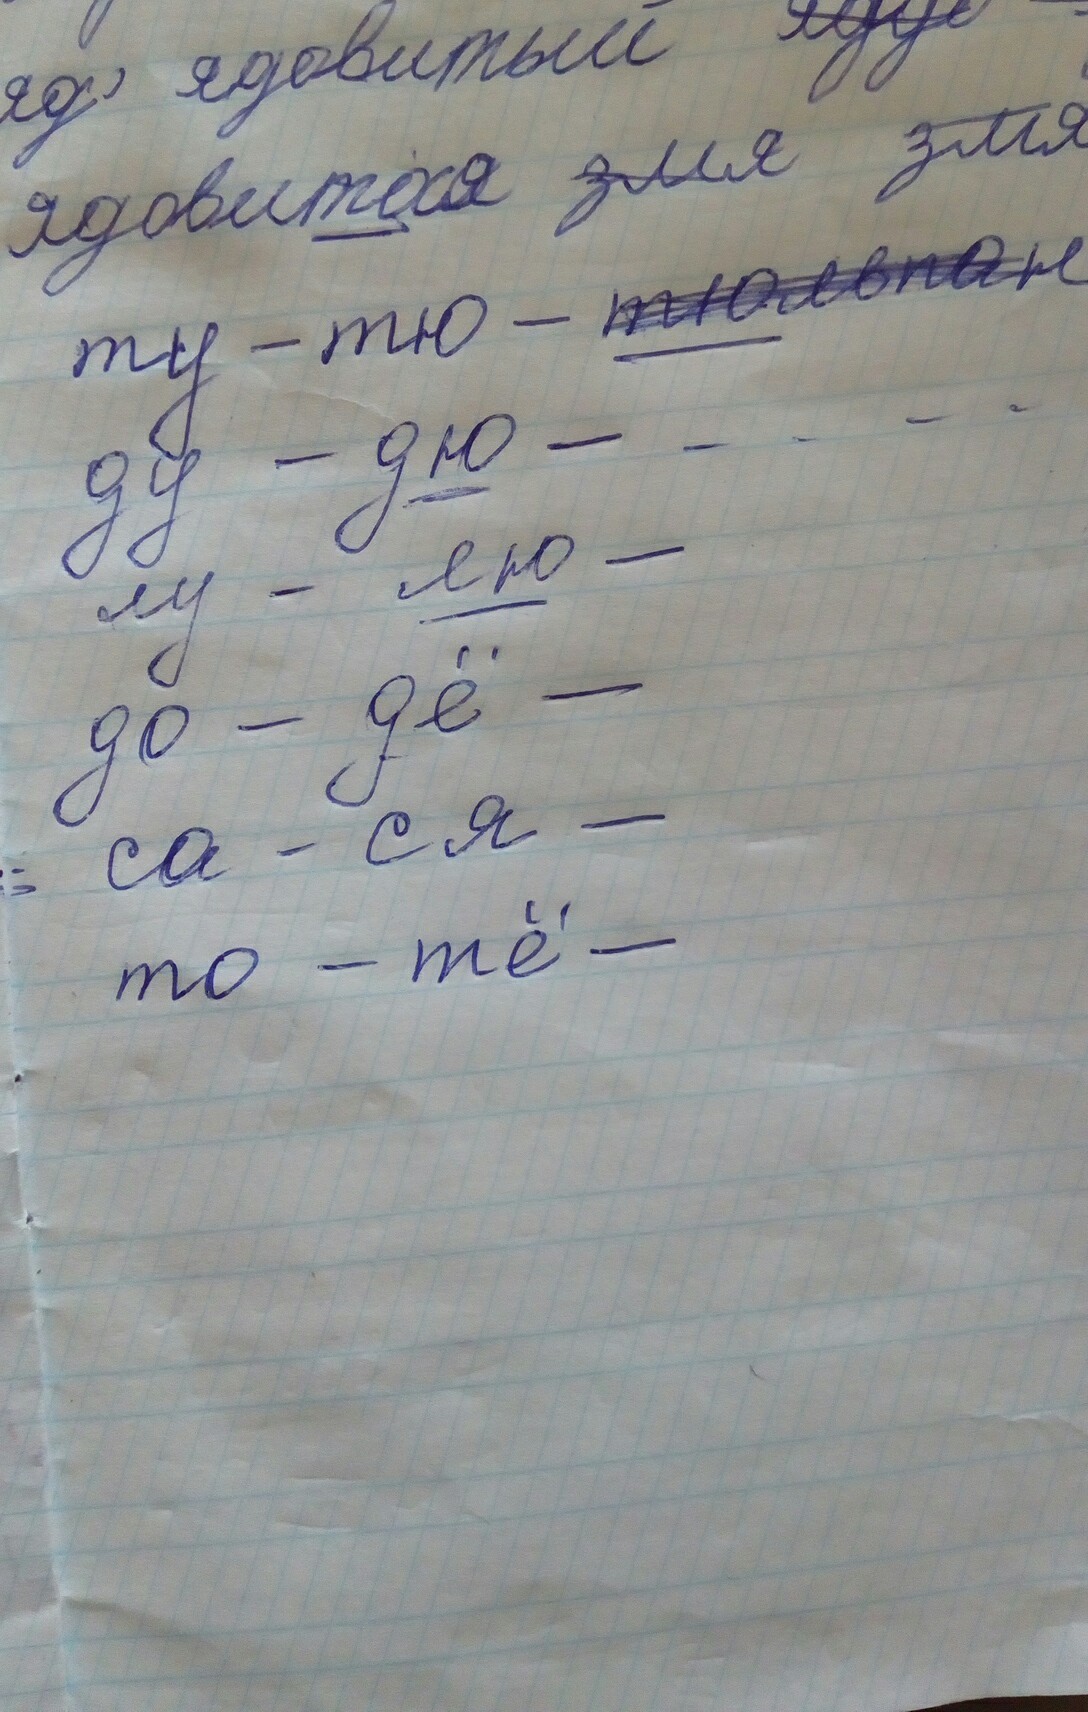 яд, ядовитый
ядовитая змя змя
ту - тю - тюльпан
ду - дю -
лу - лю -
до - дё -
са - ся -
то - тё -